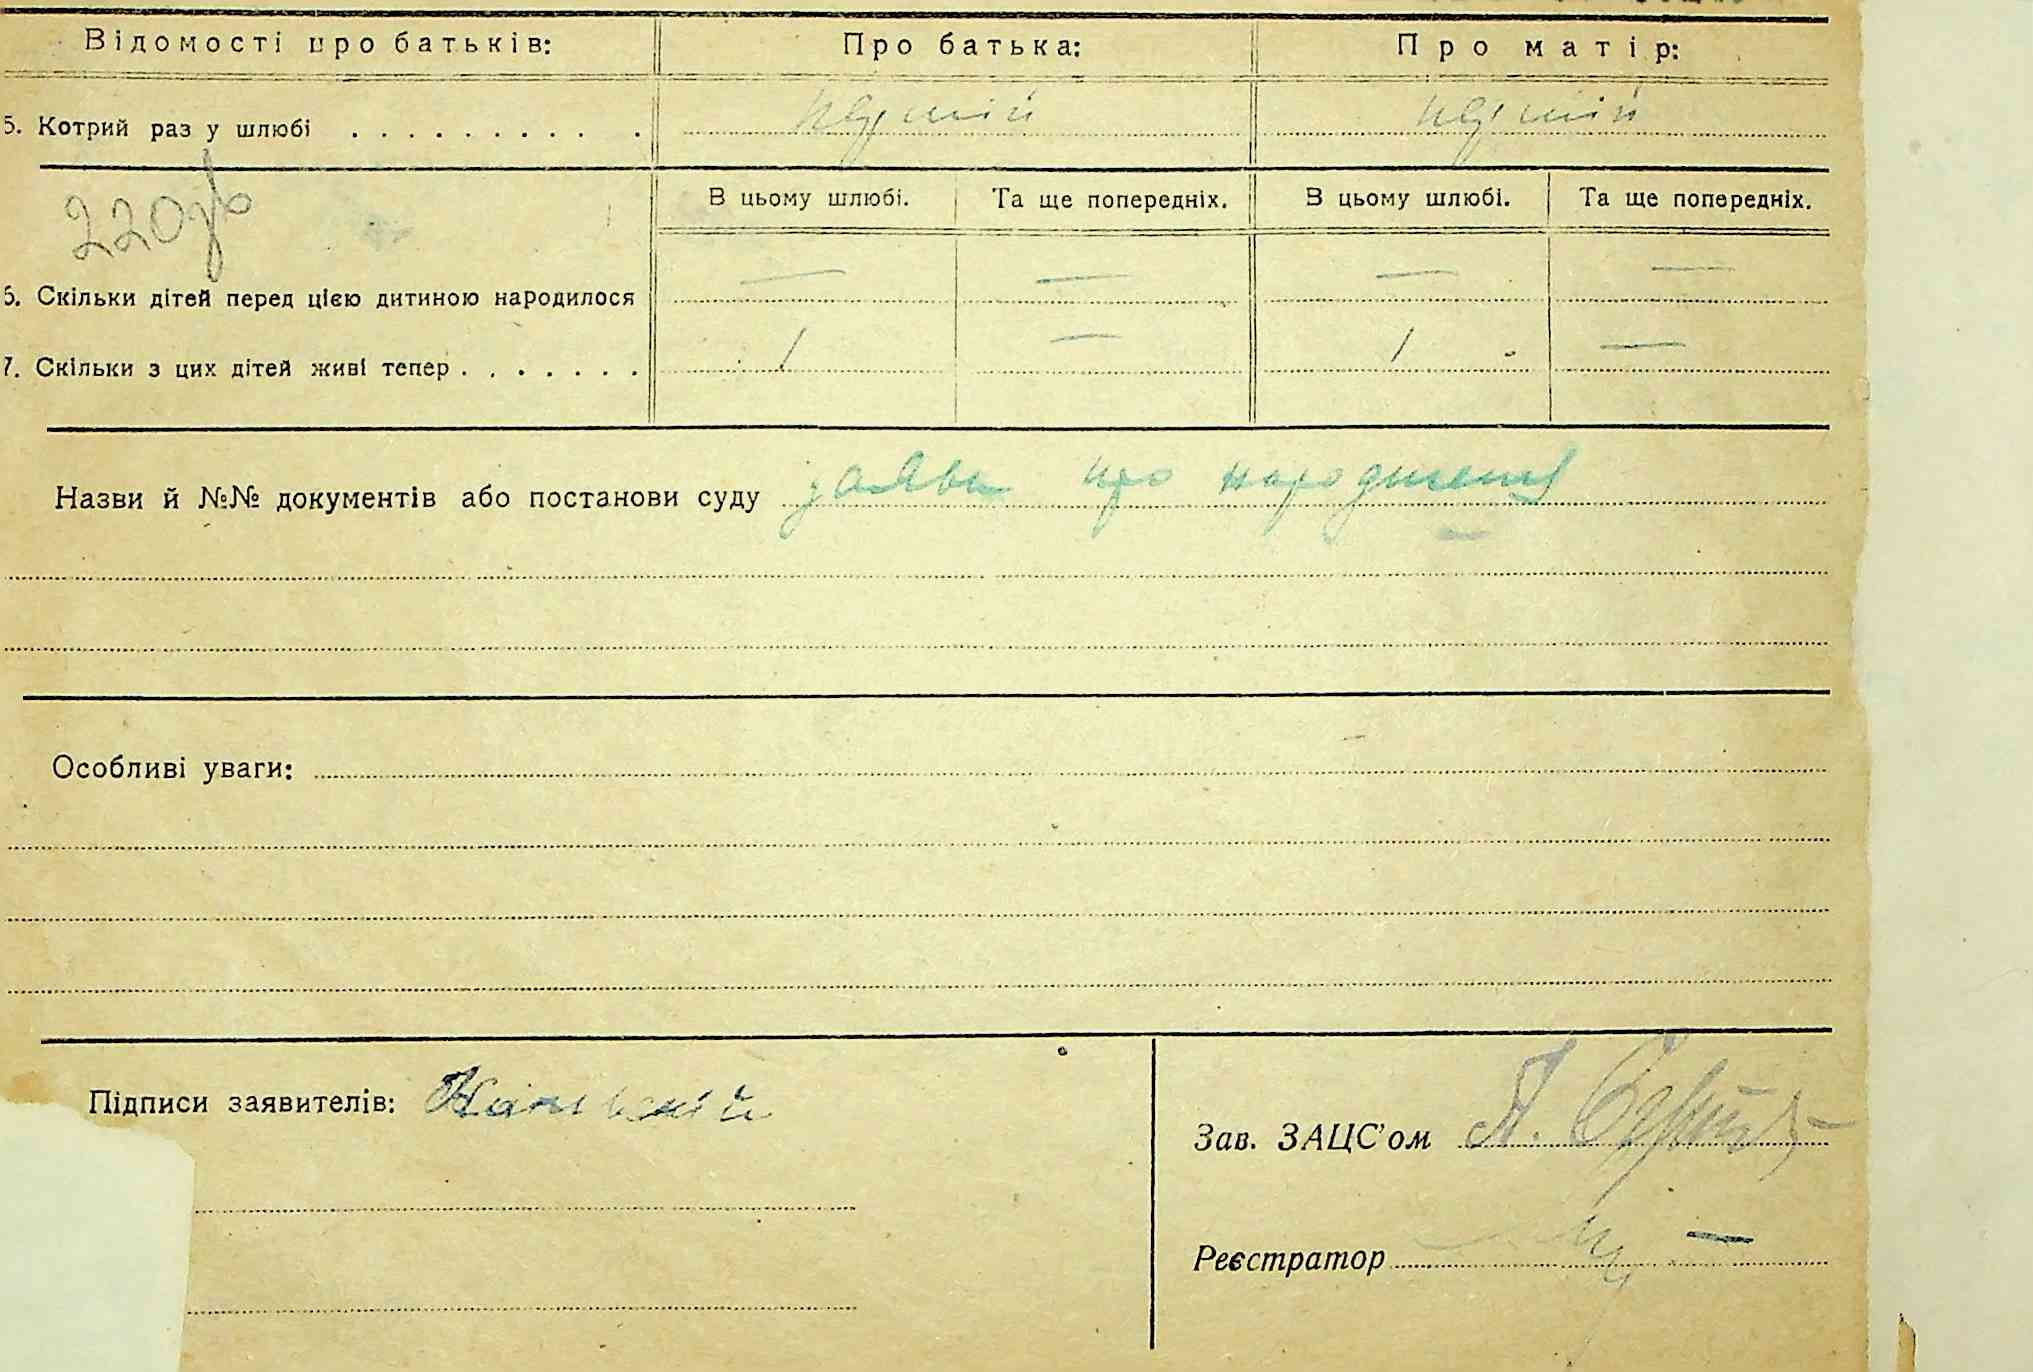 Відомості про батьків: Про батька: Про матір:
5. Котрий раз у шлюбі . . . . . . . . . . перший перший
220
В цьому шлюбі. Та ще попередніх. В цьому шлюбі. Та ще попередніх.
6. Скільки дітей перед цією дитиною народилося — — — —
7. Скільки з цих дітей живі тепер . . . . . . . 1 — 1 —
Назви й №№ документів або постанови суду заява про народження
Особливі уваги:
Підписи заявителів:
Зав. ЗАЦС'ом
Реєстратор